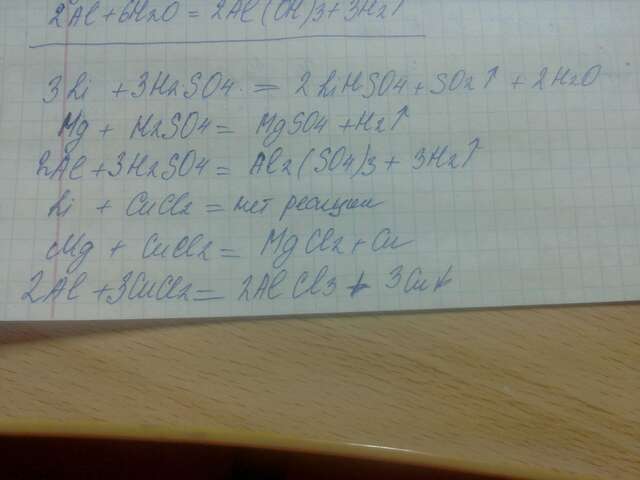 2Al + 6H2O = 2Al(OH)3 + 3H2↑
3Li + 3H2SO4 = 2LiHSO4 + SO2↑ + 2H2O
Mg + H2SO4 = MgSO4 + H2↑
2Al + 3H2SO4 = Al2(SO4)3 + 3H2↑
Li + CuCl2 = нет реакции
Mg + CuCl2 = MgCl2 + Cu
2Al + 3CuCl2 = 2AlCl3 + 3Cu↓